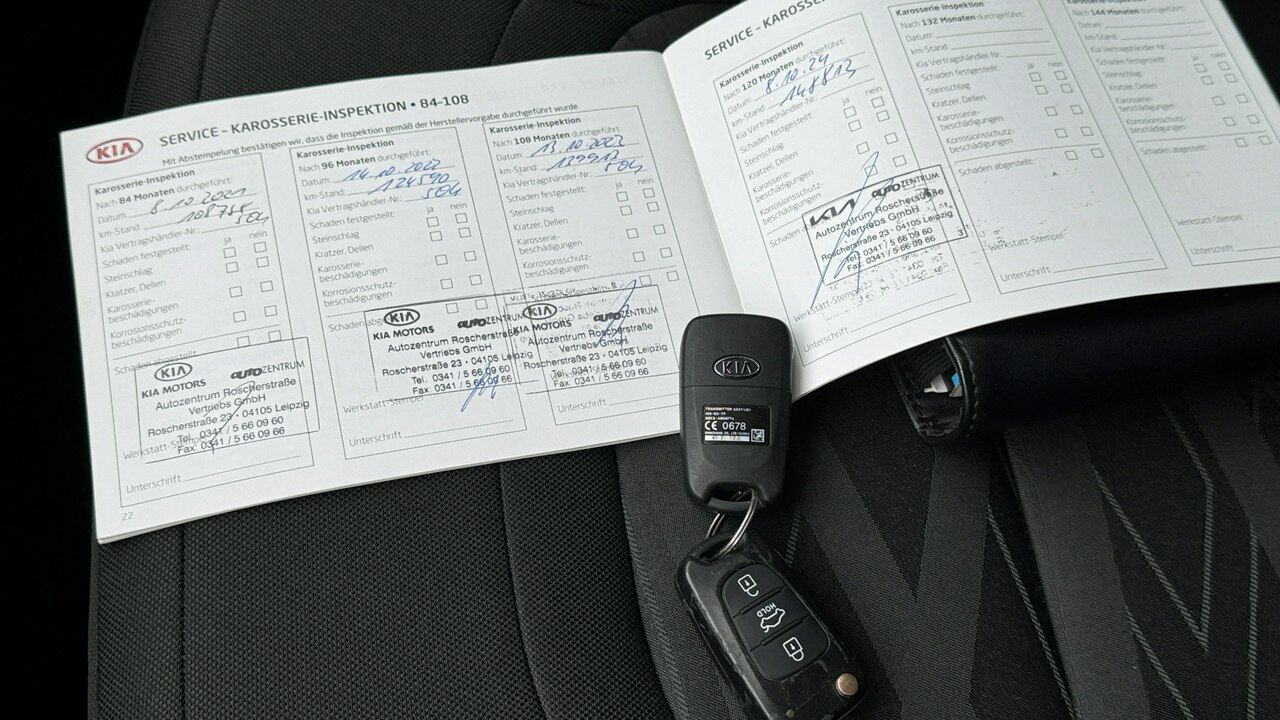 KIA
SERVICE – KAROSSERIE-INSPEKTION • 84-108
Mit Abstempelung bestätigen wir, dass die Inspektion gemäß der Herstellervorgabe durchgeführt wurde.
Karosserie-Inspektion
Nach 84 Monaten durchgeführt:
Datum: 8.10.2021
km-Stand: 108754
Kia Vertragshändler-Nr.: 504
Schaden festgestellt: ja nein
Steinschlag
Kratzer, Dellen
Karosserie-
beschädigungen
Korrosionsschutz-
beschädigungen
Schaden abgestellt:
KIA MOTORS autoZENTRUM
Autozentrum Roscherstraße
Vertriebs GmbH
Roscherstraße 23 · 04105 Leipzig
Tel. 0341 / 5 66 09 60
Fax 0341 / 5 66 09 66
Werkstatt-Stempel
Unterschrift
22
Karosserie-Inspektion
Nach 96 Monaten durchgeführt:
Datum: 14.10.2022
km-Stand: 124590
Kia Vertragshändler-Nr.: 504
Schaden festgestellt: ja nein
Steinschlag
Kratzer, Dellen
Karosserie-
beschädigungen
Korrosionsschutz-
beschädigungen
KIA MOTORS autoZENTRUM
Autozentrum Roscherstraße
Vertriebs GmbH
Roscherstraße 23 · 04105 Leipzig
Tel. 0341 / 5 66 09 60
Fax 0341 / 5 66 09 66
Werkstatt-Stempel
Unterschrift
Karosserie-Inspektion
Nach 108 Monaten durchgeführt:
Datum: 13.10.2023
km-Stand: 139913
Kia Vertragshändler-Nr.: 504
Schaden festgestellt: ja nein
Steinschlag
Kratzer, Dellen
Karosserie-
beschädigungen
Korrosionsschutz-
beschädigungen
KIA MOTORS autoZENTRUM
Autozentrum Roscherstraße
Vertriebs GmbH
Roscherstraße 23 · 04105 Leipzig
Tel. 0341 / 5 66 09 60
Fax 0341 / 5 66 09 66
Unterschrift
SERVICE – KAROSSERIE-
Karosserie-Inspektion
Nach 120 Monaten durchgeführt:
Datum: 8.10.24
km-Stand: 148813
Kia Vertragshändler-Nr.:
Schaden festgestellt: ja nein
Steinschlag
Kratzer, Dellen
Karosserie-
beschädigungen
Korrosionsschutz-
KIA autoZENTRUM
Autozentrum Roscherstraße
Vertriebs GmbH
Roscherstraße 23 · 04105 Leipzig
Tel. 0341 / 5 66 09 60
Fax 0341 / 5 66 09 66
Werkstatt-Stempel
Unterschrift
Karosserie-Inspektion
Nach 132 Monaten durchgeführt:
Datum:
km-Stand:
Kia Vertragshändler-Nr.:
Schaden festgestellt: ja nein
Steinschlag
Kratzer, Dellen
Karosserie-
beschädigungen
Korrosionsschutz-
beschädigungen
Schaden abgestellt:
Werkstatt-Stempel
Unterschrift
Nach 144 Monaten durchgeführt:
Datum:
km-Stand:
Kia Vertragshändler-Nr.:
Schaden festgestellt: ja nein
Steinschlag
Kratzer, Dellen
Karosserie-
beschädigungen
Korrosionsschutz-
beschädigungen
Schaden abgestellt:
Werkstatt-Stempel
Unterschrift
KIA
CE 0678
HOLD